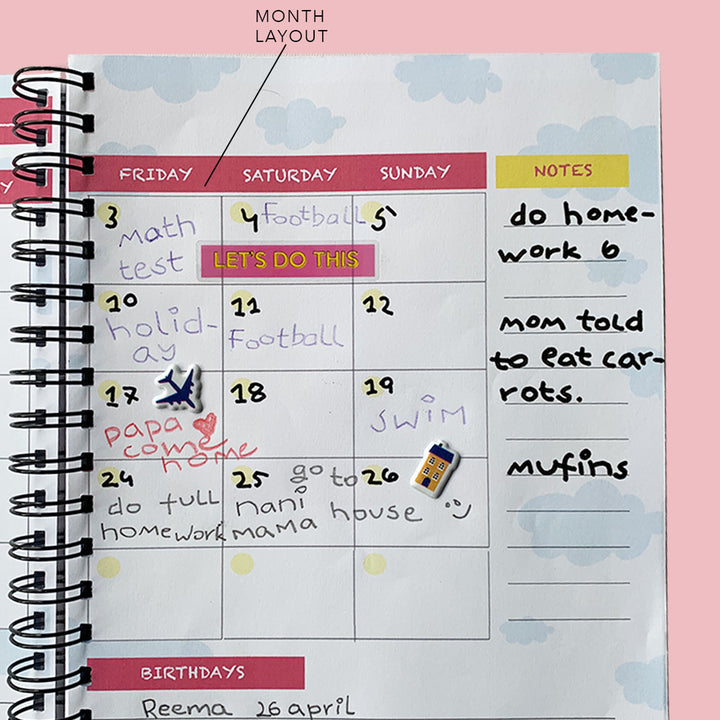 MONTH
LAYOUT
FRIDAY SATURDAY SUNDAY NOTES
3 4 football 5
math
test
LET'S DO THIS
10 11 12
holid-
ay
Football
17 18 19
papa
come
home
swim
24 25 26
do full
homework
go to
nani
mama house
do home-
work 6
mom told
to eat car-
rots.
mufins
BIRTHDAYS
Reema 26 april